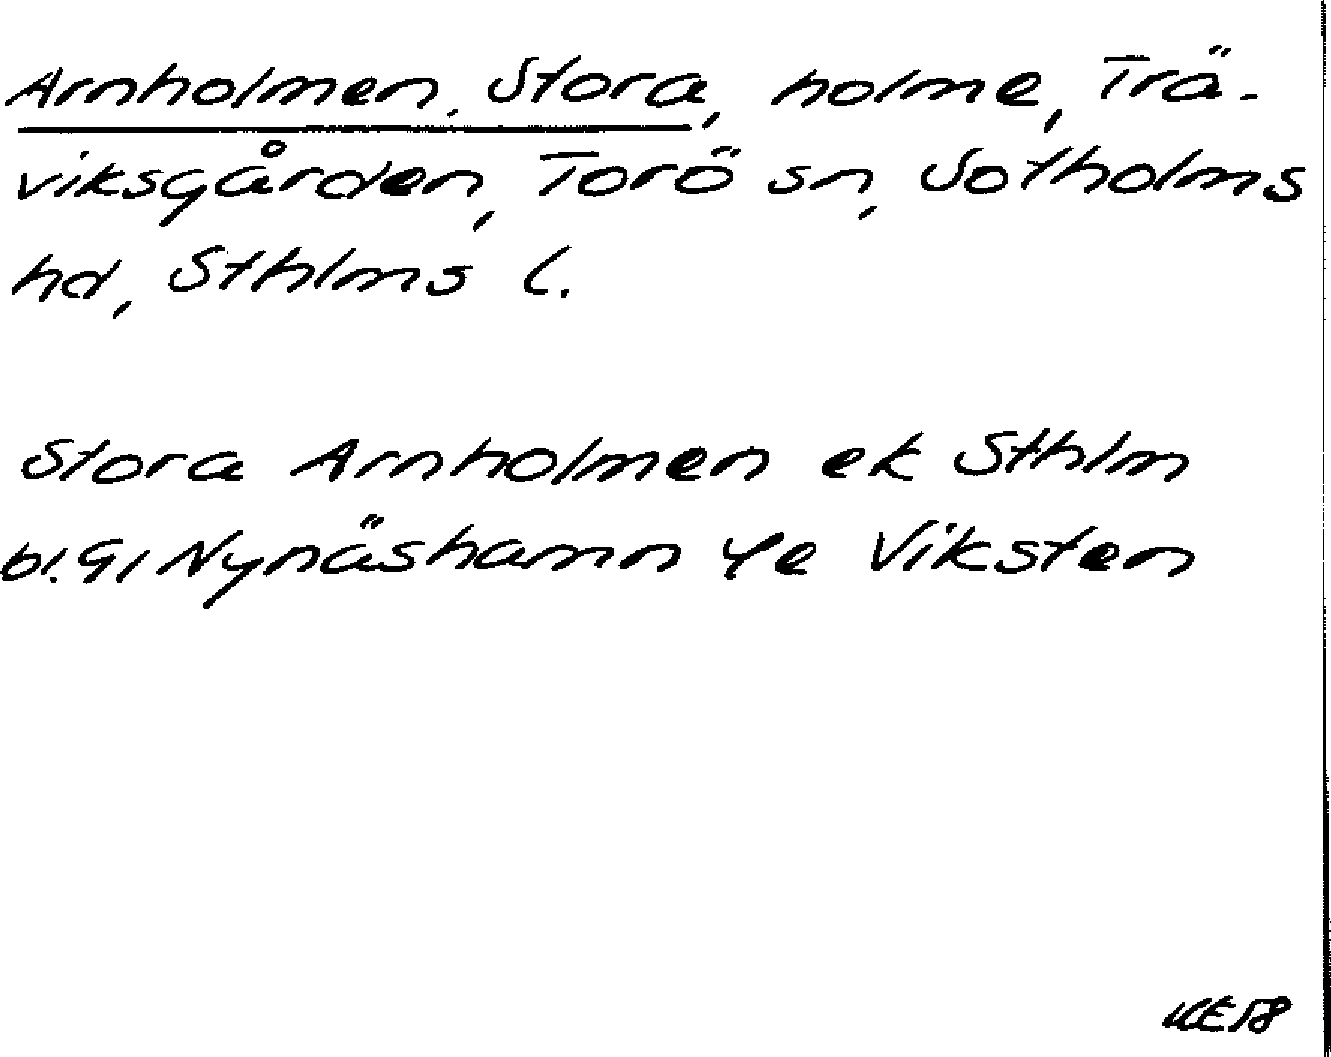 Arnholmen, Stora, holme, Trä-
viksgården, Torö sn, Sotholms
hd, Sthlms l.
Stora Arnholmen ek Sthlm
bl. 91 Nynäshamn 4e Viksten